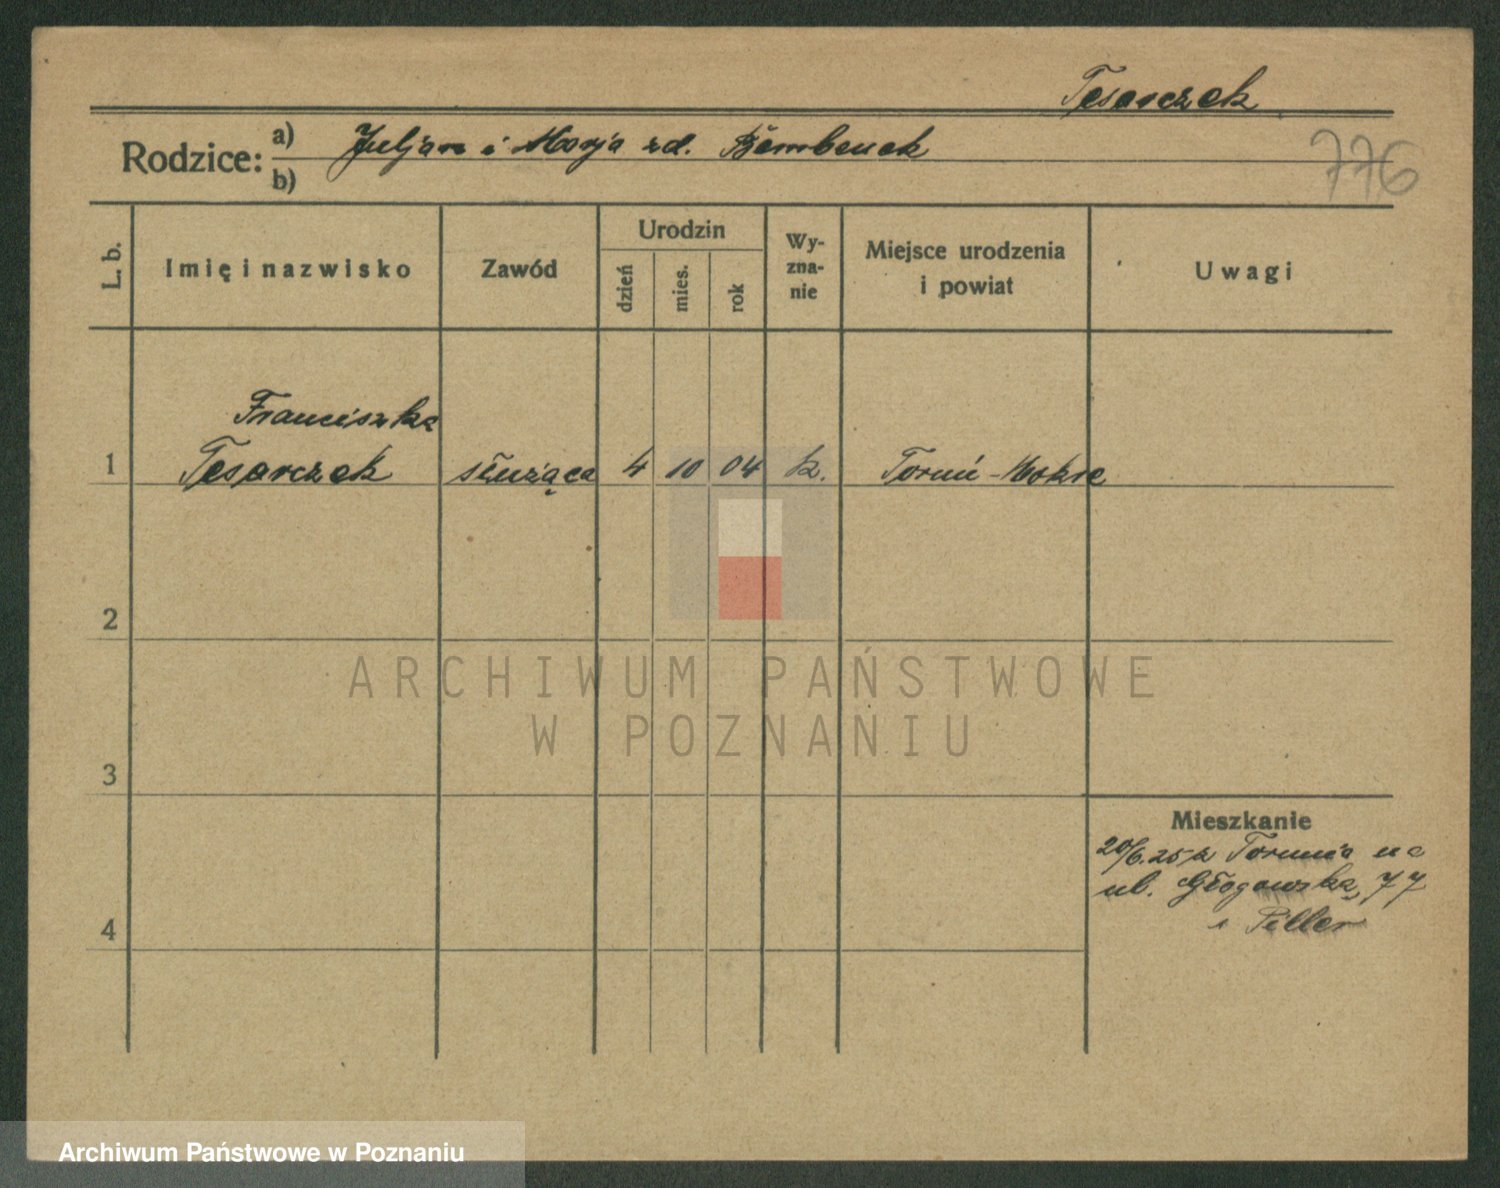 Tesarczek
Rodzice: a) Juljan i Marja zd. Bembenek
b)
776
L. b.
Imię i nazwisko
Zawód
Urodzin
dzień
mies.
rok
Wy-
zna-
nie
Miejsce urodzenia
i powiat
Uwagi
Franciszka
1 Tesarczek służąca 4 10 04 k. Toruń-Mokre
2
ARCHIWUM PAŃSTWOWE
W POZNANIU
3
Mieszkanie
20/6.25 z Torunia na
ul. Głogowska, 77
Piller
4
Archiwum Państwowe w Poznaniu